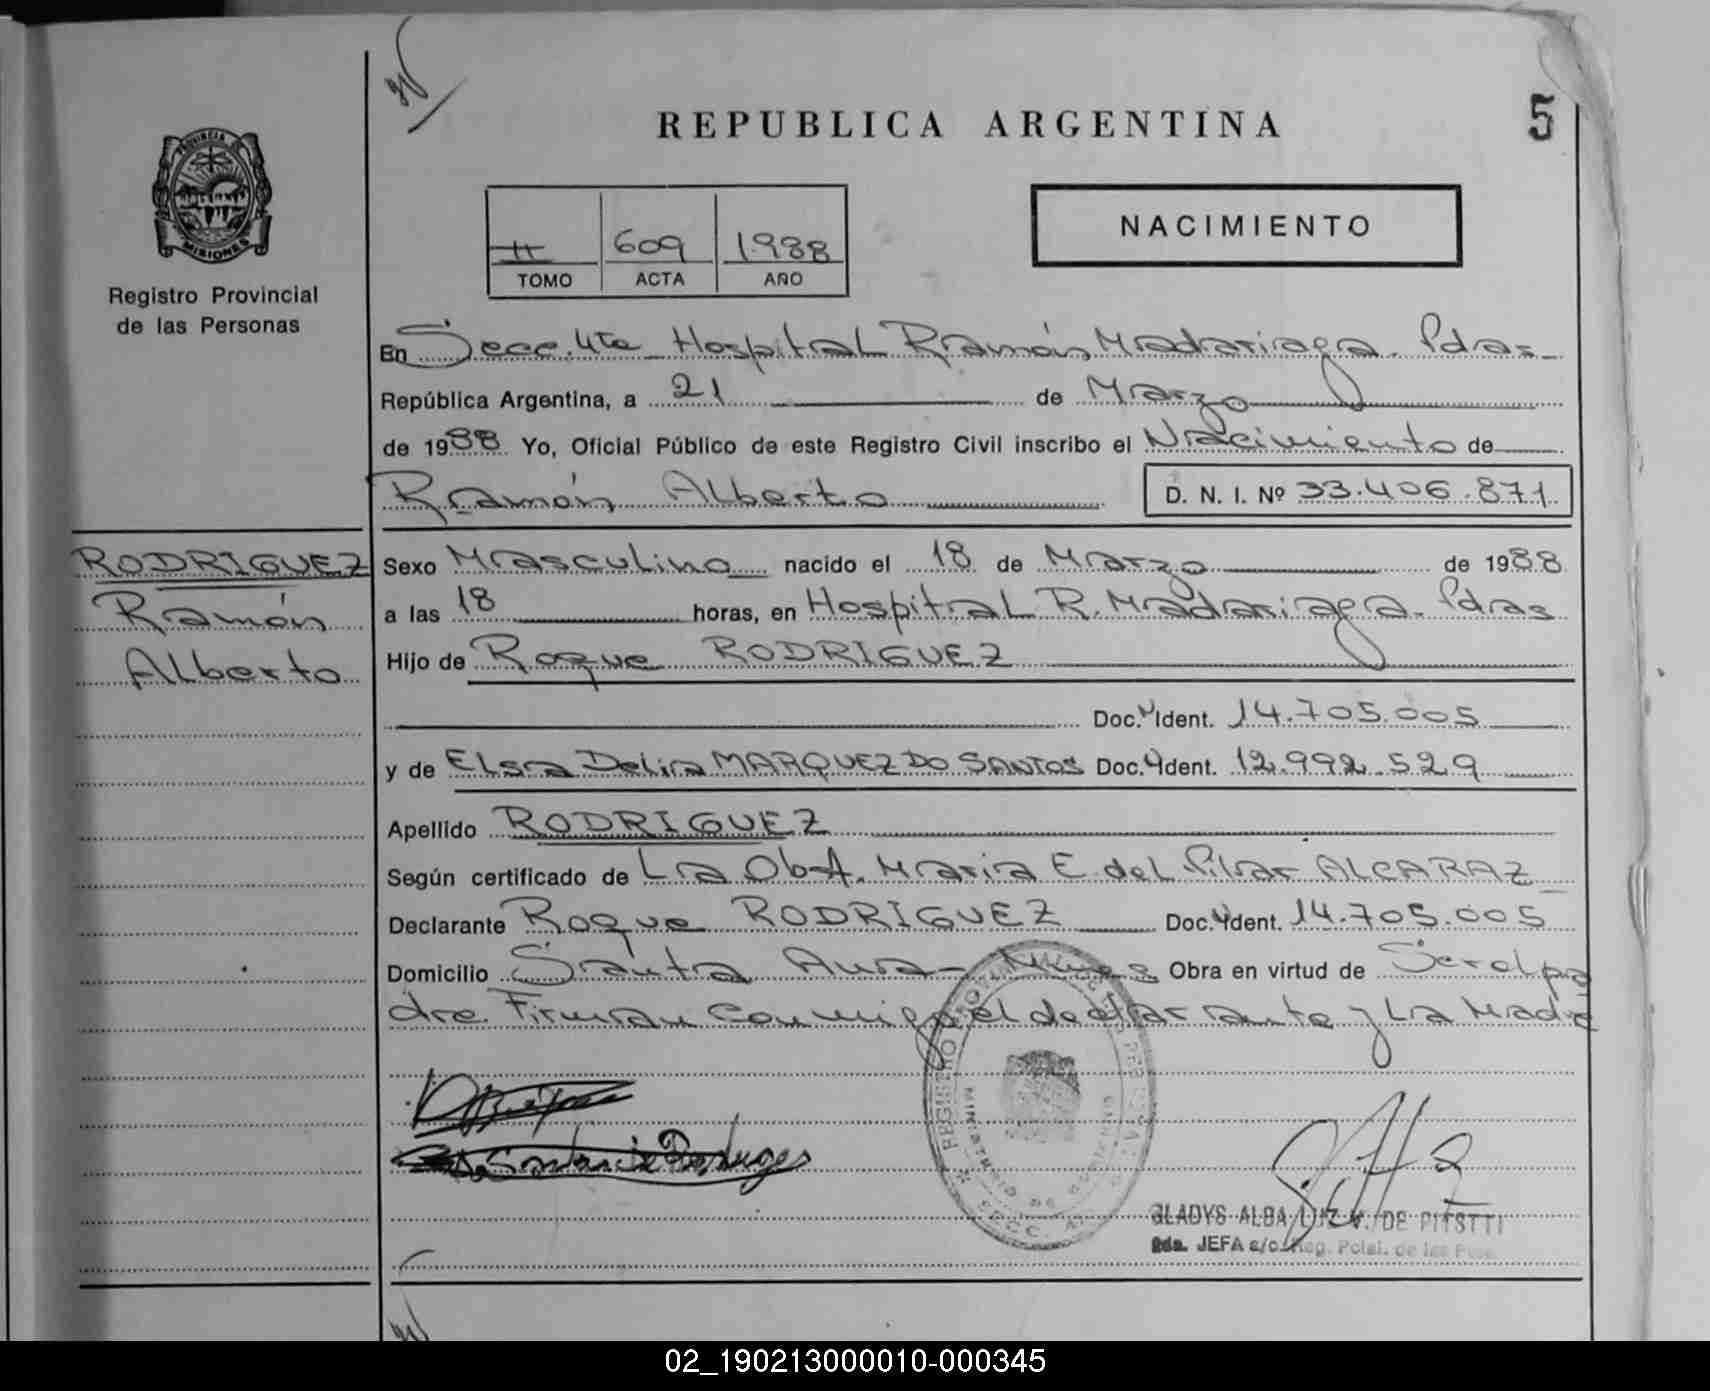 REPUBLICA ARGENTINA
5
PROVINCIA DE
MISIONES
Registro Provincial
de las Personas
II 609 1988
TOMO ACTA AÑO
NACIMIENTO
En Secc. 4ta Hospital Ramón Madariaga. Pdas
República Argentina, a 21 de Marzo
de 1988 Yo, Oficial Público de este Registro Civil inscribo el Nacimiento de
Ramón Alberto D. N. I. Nº 33.406.871
RODRIGUEZ
Ramón
Alberto
Sexo Masculino nacido el 18 de Marzo de 1988
a las 18 horas, en Hospital R. Madariaga. Pdas
Hijo de Roque RODRIGUEZ
Doc. Ident. 14.705.005
y de Elsa Delia MARQUEZ DO SANTOS Doc. Ident. 12.992.529
Apellido RODRIGUEZ
Según certificado de La Obst. Maria E del Pilar ALCARAZ
Declarante Roque RODRIGUEZ Doc. Ident. 14.705.005
Domicilio Santa Ana - Mnes Obra en virtud de Ser el pa
dre. Firman conmigo el declarante y la Madre
REGISTRO
MINISTERIO DE GOBIERNO
GLADYS ALBA V. DE
2da. JEFA a/c. Reg. Pcial. de las Pers.
02_190213000010-000345